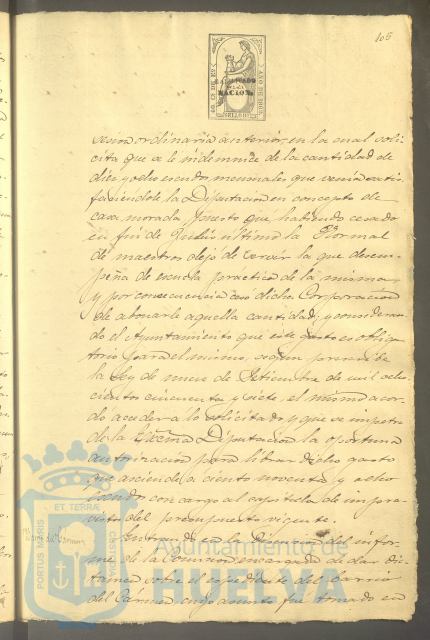 105
AÑO DE 1869
HABILITADO
POR LA
NACION
SELLO 11º
sesion ordinaria anterior, en la cual soli
cita que se le indemnice de la cantidad de
diez y ocho escudos mensuales que venia satis
faciendole la Diputacion en concepto de
casa morada, puesto que habiendo cesado
en fin de Junio último la Normal
de maestros dejó de servir la que desem
peña de escuela práctica de la misma
y por consecuencia cesó dicha Corporacion
de abonarle aquella cantidad; y consideran
do el Ayuntamiento que este gasto es obliga
torio para el mismo, segun previene
la Ley de nueve de Setiembre de mil ocho
cientos cincuenta y siete, el mismo acor
dó acceder a lo solicitado y que se impetre
de la Excma Diputacion la oportuna
autorizacion para librar dicho gasto
que asciende a ciento noventa y ocho
escudos con cargo al capítulo de impre
vistos del presupuesto vigente.
Entrando en la discusion del infor
me de la Comision encargada de dar dic
tamen sobre el espediente del barrio
del Cármen cuyo asunto fue tomado en
PORTUS MARIS
ET TERRÆ
CUSTODIA
Ayuntamiento de
HUELVA